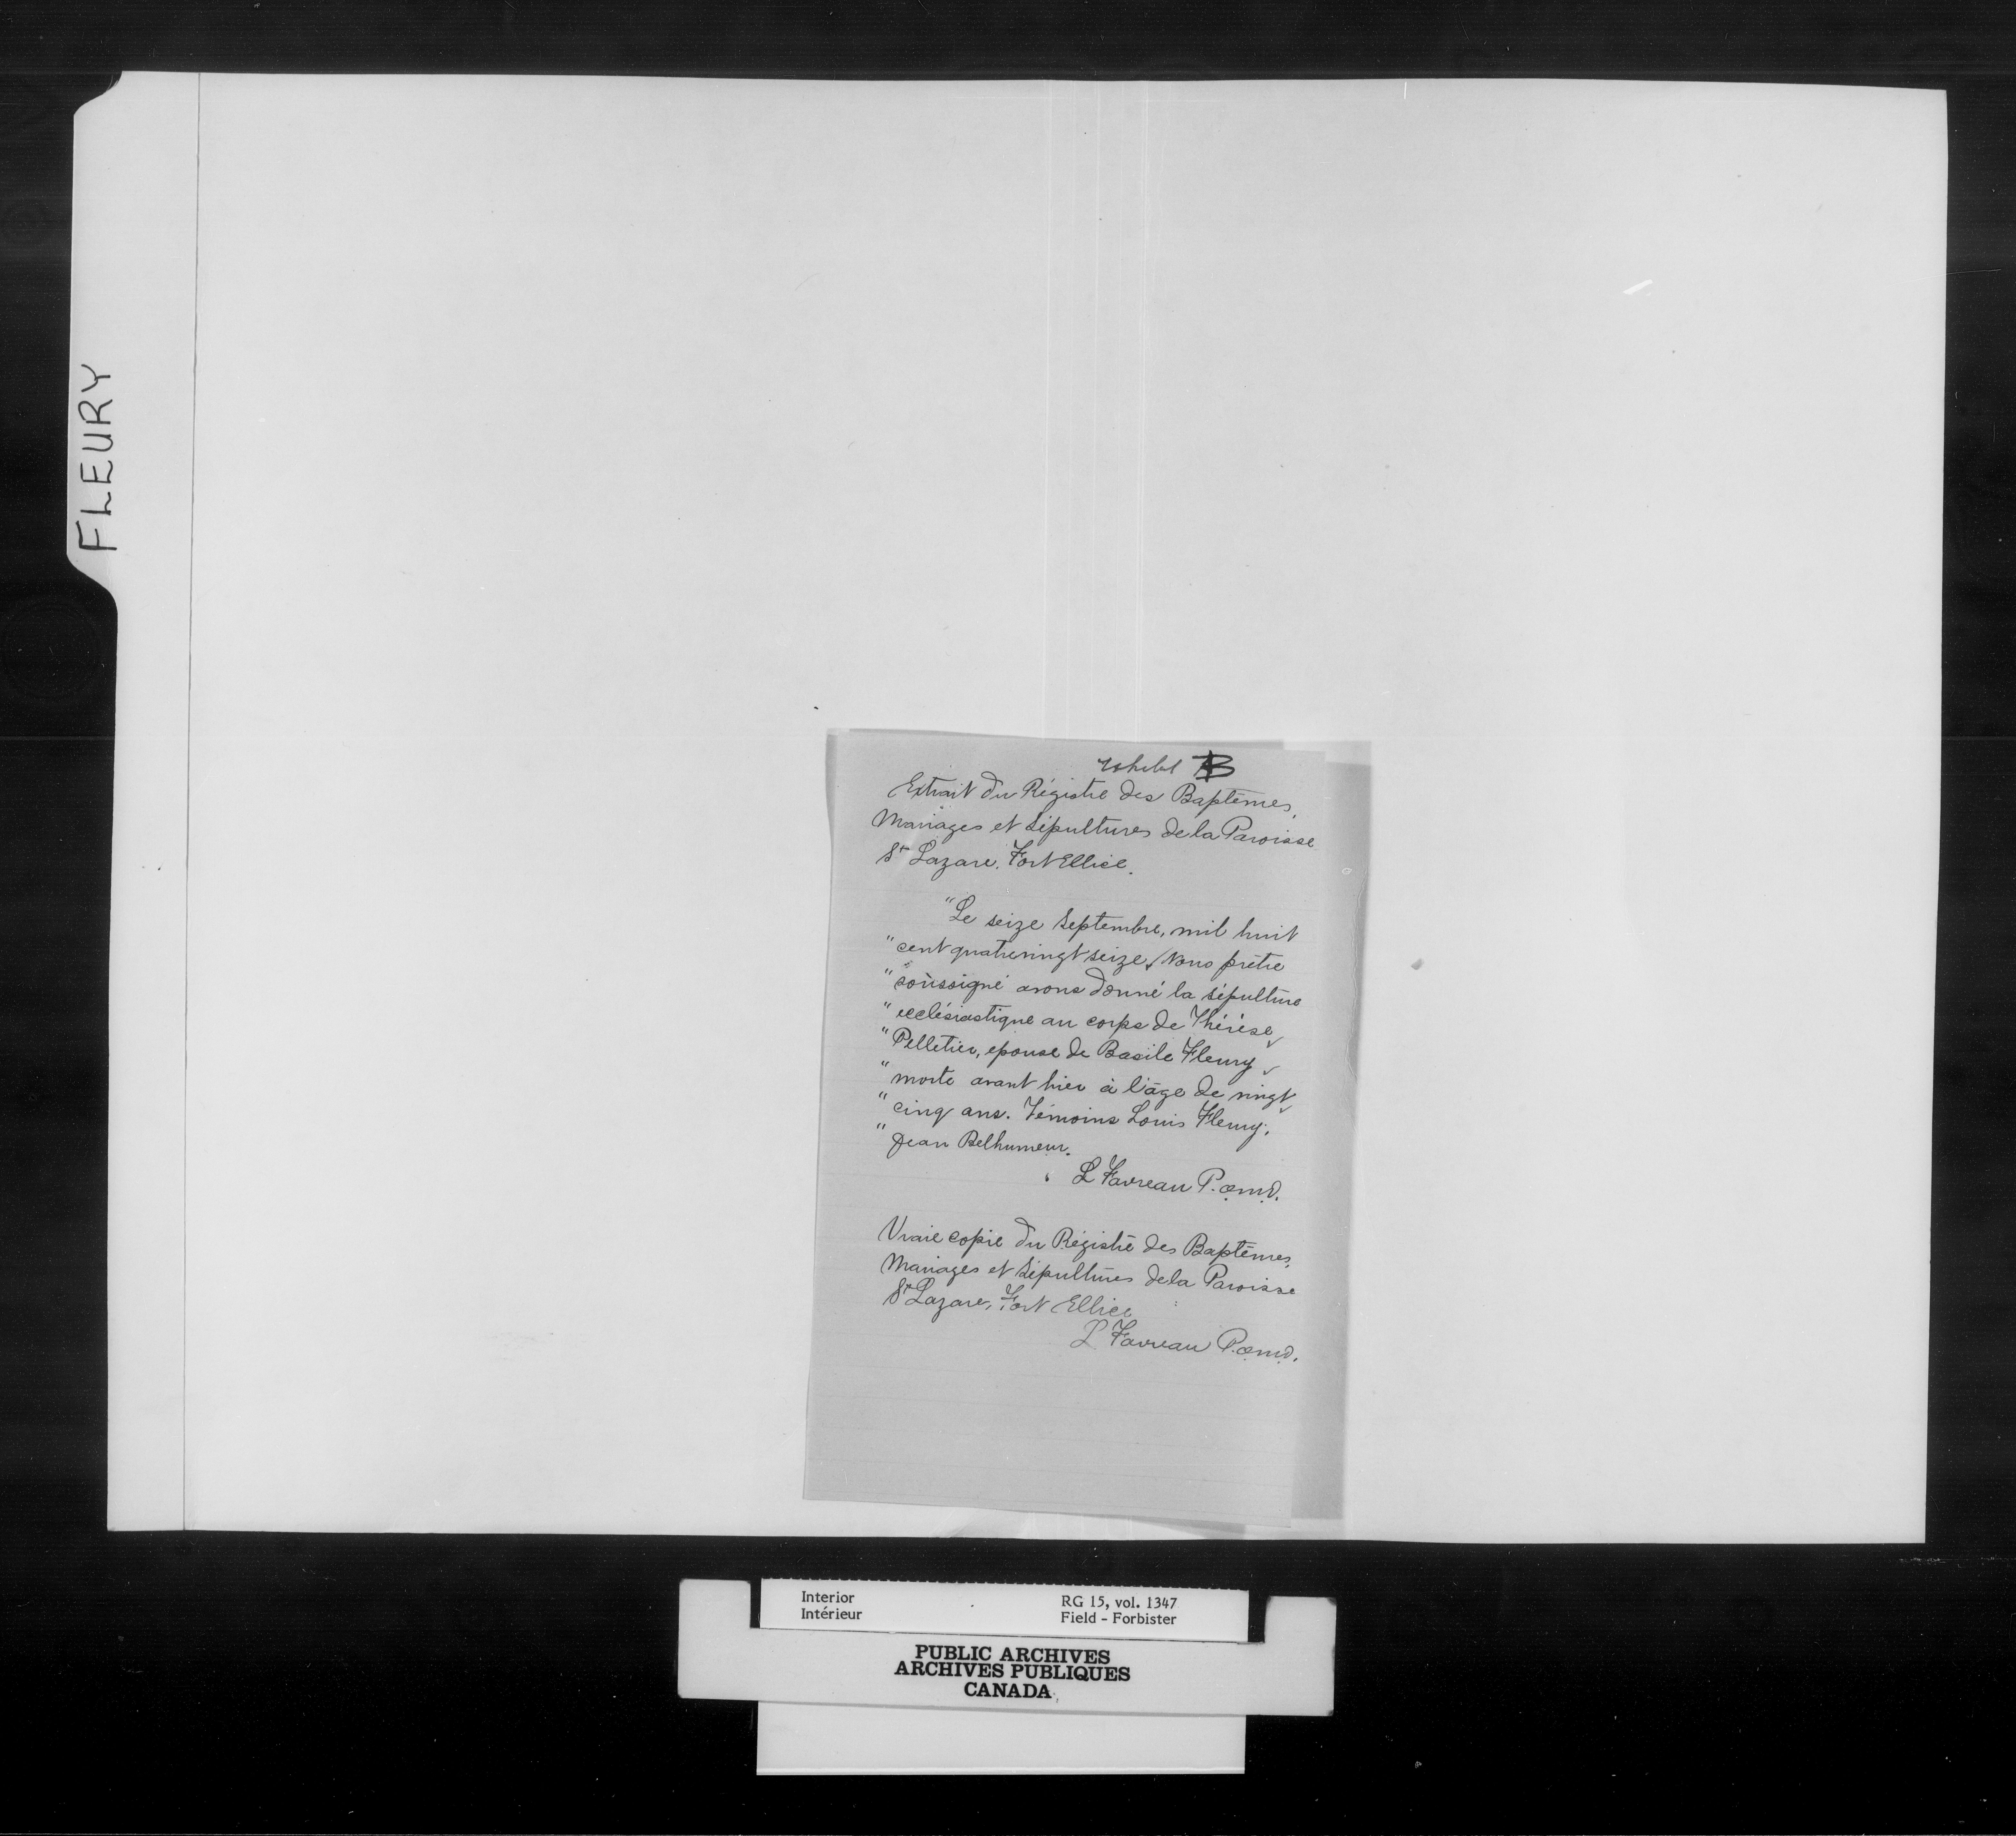 FLEURY
Exhibit B
Extrait du Régistre des Baptêmes,
Mariages et Sépultures de la Paroisse
St Lazare. Fort Ellice.
"Le seize Septembre, mil huit
"cent quatrevingt seize, Nous prêtre
"soussigné avons donné la sépulture
"ecclésiastique au corps de Thérèse
"Pelletier, epouse de Basile Fleury
"morte avant hier à l'âge de vingt
"cinq ans. Témoins Louis Fleury,
"Jean Belhumeur.
L Favreau P. o.m.d.
Vraie copie du Régistre des Baptêmes,
Mariages et Sépultures de la Paroisse
St Lazare, Fort Ellice
L Favreau P. o.m.d.
Interior RG 15, vol. 1347
Intérieur Field - Forbister
PUBLIC ARCHIVES
ARCHIVES PUBLIQUES
CANADA